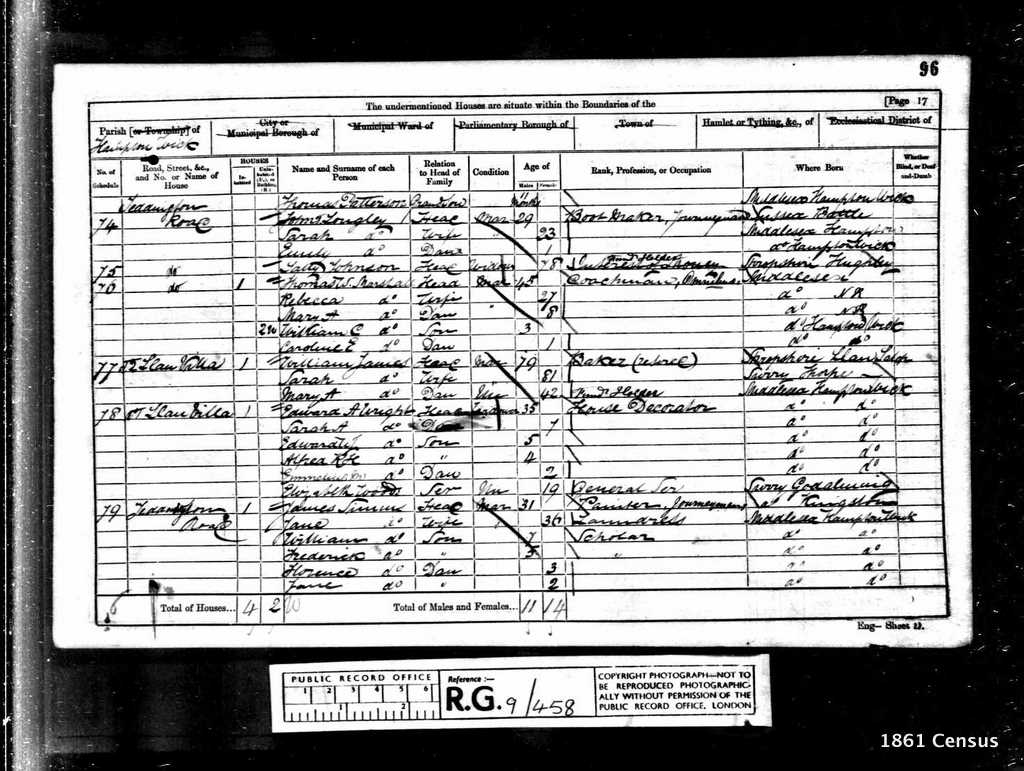 96
The undermentioned Houses are situate within the Boundaries of the
[Page 17
Parish [or Township] of
City or
Municipal Borough of
Municipal Ward of
Parliamentary Borough of
Town of
Hamlet or Tything, &c., of
Ecclesiastical District of
Hampton Wick
No. of Schedule
Road, Street, &c., and No. or Name of House
HOUSES
Inhabited
Uninhabited (U.), or Building (B.)
Name and Surname of each Person
Relation to Head of Family
Condition
Age of
Males
Females
Rank, Profession, or Occupation
Where Born
Whether Blind, or Deaf-and-Dumb
Teddington Thomas Patterson Grandson 11 Months Middlesex Hampton Wick
74 Road John Longley Head Mar 29 Boot Maker Journeyman Sussex Battle
Sarah do Wife 23 Middlesex Hampton
Emily do Daur 1 do Hampton Wick
75 do Johnson Head Widow 78 Fund Holder Shropshire Hughley
76 do 1 Thomas W. Marshall Head Mar 45 Coachman, Omnibus Middlesex
Rebecca do Wife 27 do NK
Mary A do Dau 8 do NK
2 W William C do Son 3 do Hampton Wick
Caroline E do Dau 1 do do
77 Llan Villa 1 William James Head Mar 79 Baker (retired) Shropshire Llan
Sarah do Wife 81 Surry Thorpe
Mary A do Dau Un 42 Fund Holder Middlesex Hampton Wick
78 Llan Villa 1 Edward A Wright Head 35 House Decorator do do
Sarah A do Dau 7 do do
Edward J do Son 5 do do
Alfred do " 4 do do
do Dau 2 do do
Elizabeth Woods Ser Un 19 General Ser Surry Godalming
79 Teddington Road 1 James Head Mar 31 Painter Journeyman do Kingston
Jane do Wife " 36 Laundress Middlesex Hampton Wick
William do Son 7 Scholar do do
Frederick do " 5 " do do
Florence do Dau 3 do do
Jane do " 2 do do
Total of Houses... 4 2 W
Total of Males and Females... 11 14
Eng— Sheet
PUBLIC RECORD OFFICE
1 2 3 4 5 6
1 2
Reference :—
R.G. 9/458
COPYRIGHT PHOTOGRAPH—NOT TO
BE REPRODUCED PHOTOGRAPHIC-
ALLY WITHOUT PERMISSION OF THE
PUBLIC RECORD OFFICE, LONDON
1861 Census